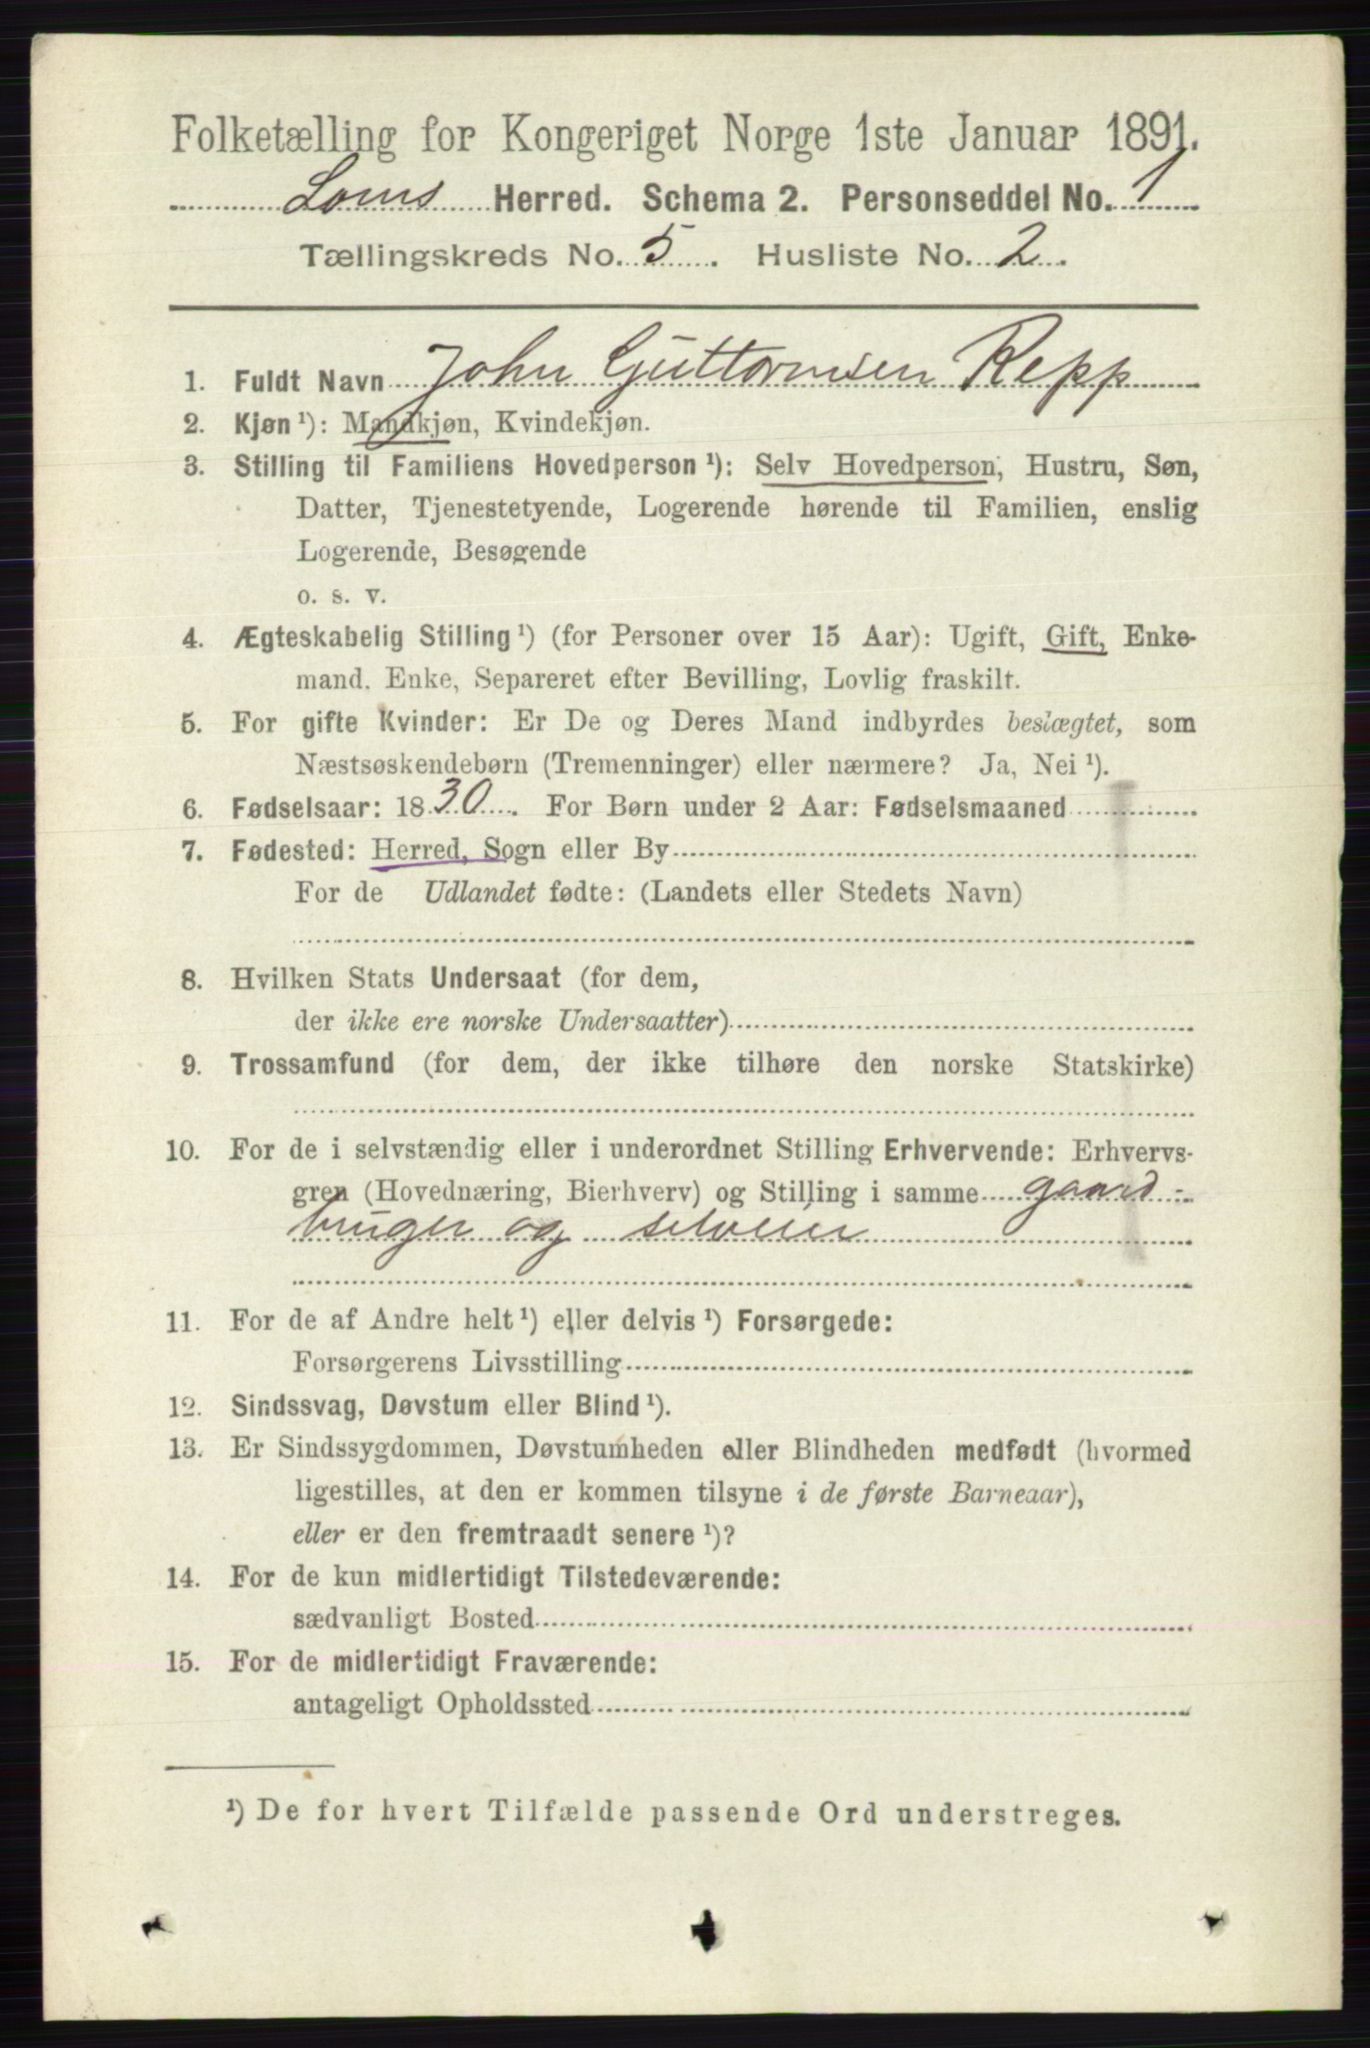 Folketælling for Kongeriget Norge 1ste Januar 1891.
Loms Herred. Schema 2. Personseddel No. 1
Tællingskreds No. 5. Husliste No. 2.
1. Fuldt Navn John Guttormsen Repp
2. Kjøn ¹): Mandkjøn, Kvindekjøn.
3. Stilling til Familiens Hovedperson ¹): Selv Hovedperson, Hustru, Søn,
Datter, Tjenestetyende, Logerende hørende til Familien, enslig
Logerende, Besøgende
o. s. v.
4. Ægteskabelig Stilling ¹) (for Personer over 15 Aar): Ugift, Gift, Enke-
mand, Enke, Separeret efter Bevilling, Lovlig fraskilt.
5. For gifte Kvinder: Er De og Deres Mand indbyrdes beslægtet, som
Næstsøskendebørn (Tremenninger) eller nærmere? Ja, Nei ¹).
6. Fødselsaar: 1830. For Børn under 2 Aar: Fødselsmaaned
7. Fødested: Herred, Sogn eller By
For de Udlandet fødte: (Landets eller Stedets Navn)
8. Hvilken Stats Undersaat (for dem,
der ikke ere norske Undersaatter)
9. Trossamfund (for dem, der ikke tilhøre den norske Statskirke)
10. For de i selvstændig eller i underordnet Stilling Erhvervende: Erhvervs-
gren (Hovednæring, Bierhverv) og Stilling i samme gaard-
bruger og selveier
11. For de af Andre helt ¹) eller delvis ¹) Forsørgede:
Forsørgerens Livsstilling
12. Sindssvag, Døvstum eller Blind ¹).
13. Er Sindssygdommen, Døvstumheden eller Blindheden medfødt (hvormed
ligestilles, at den er kommen tilsyne i de første Barneaar),
eller er den fremtraadt senere ¹)?
14. For de kun midlertidigt Tilstedeværende:
sædvanligt Bosted
15. For de midlertidigt Fraværende:
antageligt Opholdssted
¹) De for hvert Tilfælde passende Ord understreges.